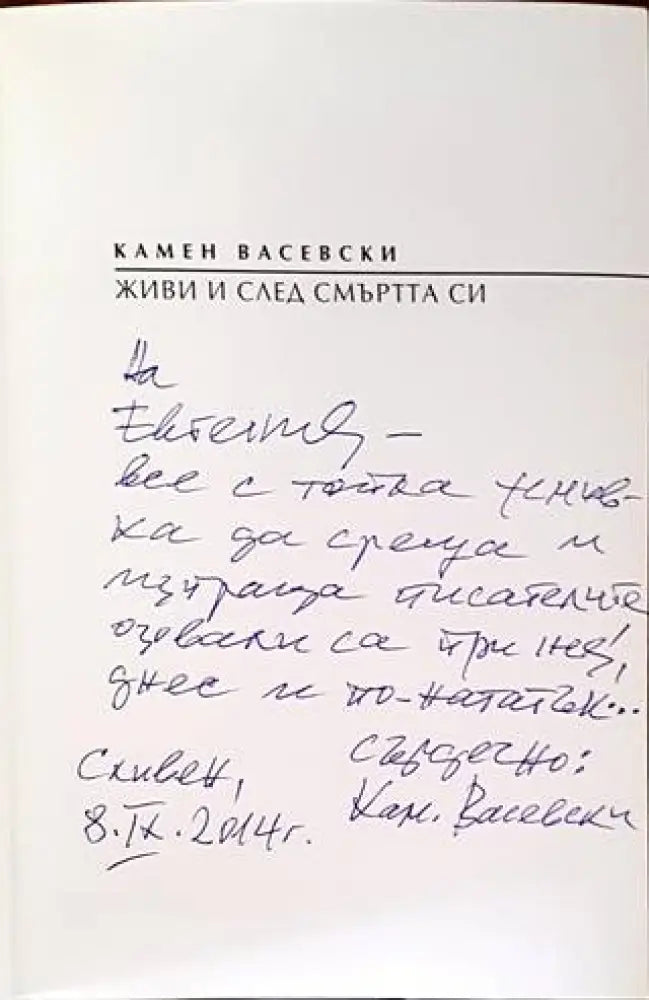 КАМЕН ВАСЕВСКИ
ЖИВИ И СЛЕД СМЪРТТА СИ
На
–
все с топка
ка да среща и
изпраща писателите
са при нея,
днес и по-нататък...
Сливен,
8.IX.2014 г.
сърдечно:
Кам. Васевски